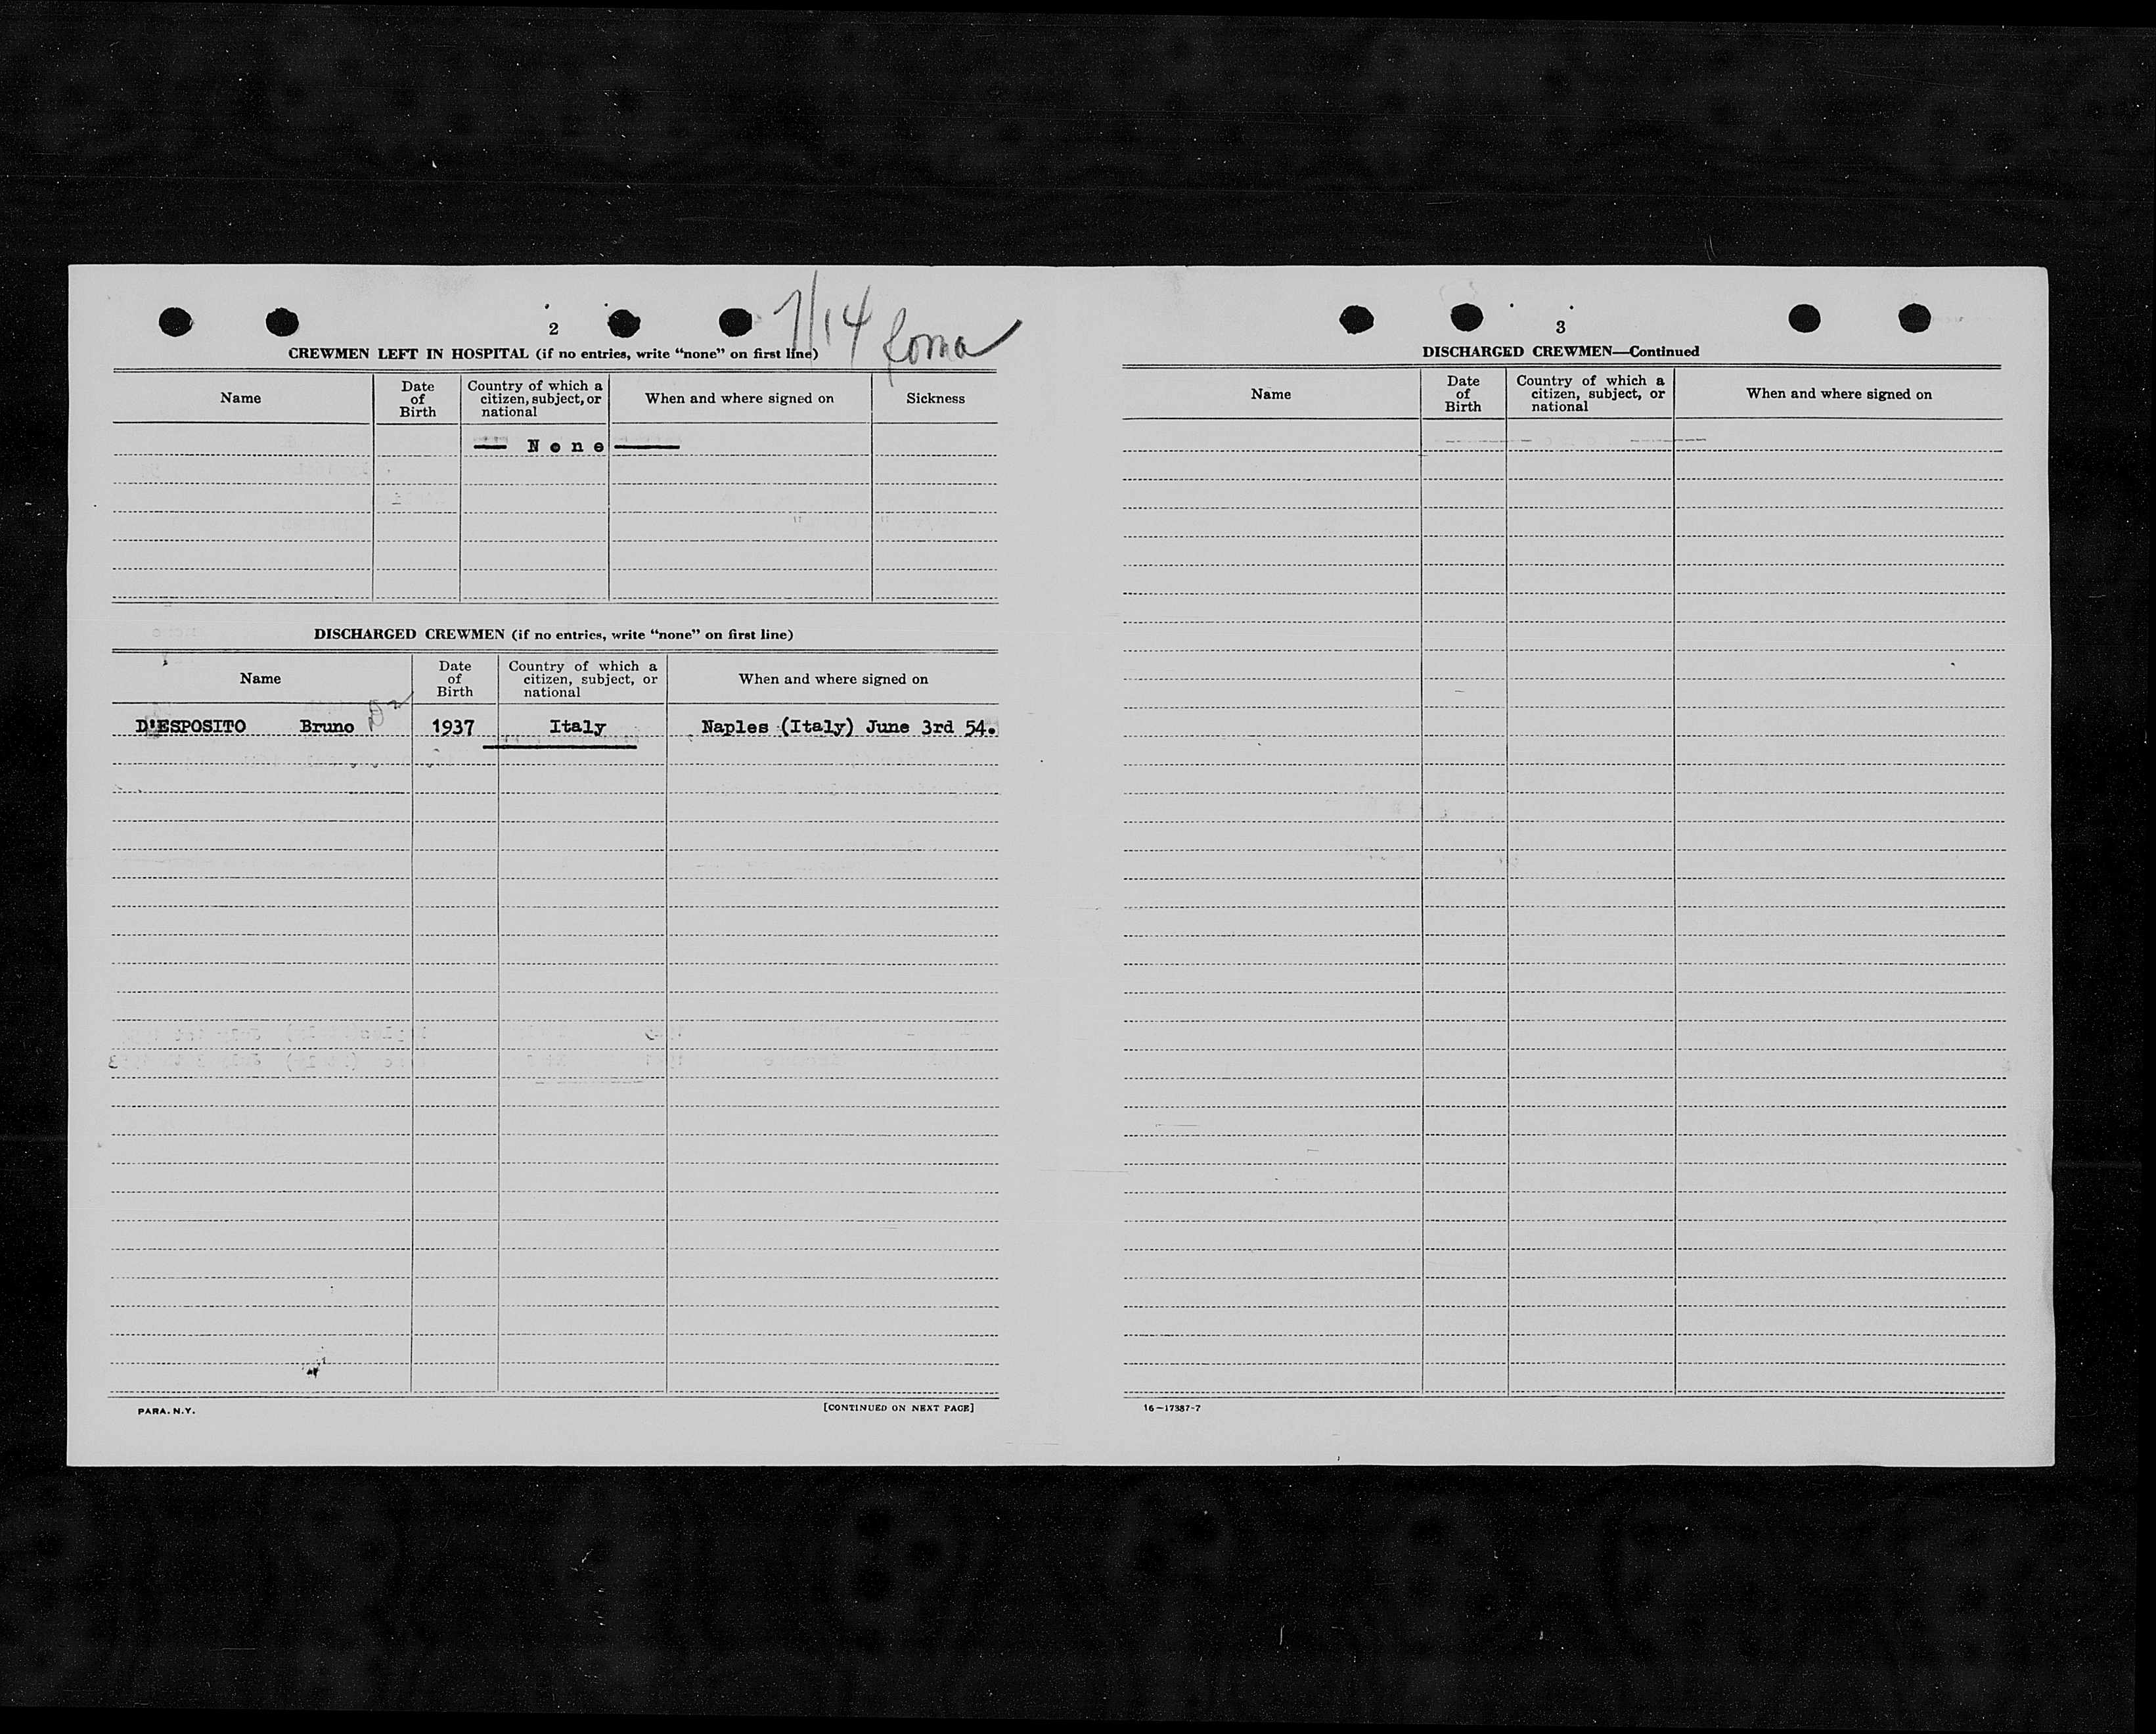 2
7/14 Roma
CREWMEN LEFT IN HOSPITAL (if no entries, write "none" on first line)
Name
Date of Birth
Country of which a citizen, subject, or national
When and where signed on
Sickness
— None —
DISCHARGED CREWMEN (if no entries, write "none" on first line)
Name
Date of Birth
Country of which a citizen, subject, or national
When and where signed on
D'ESPOSITO Bruno 1937 Italy Naples (Italy) June 3rd 54.
PARA. N.Y.
[CONTINUED ON NEXT PAGE]
3
DISCHARGED CREWMEN—Continued
Name
Date of Birth
Country of which a citizen, subject, or national
When and where signed on
16—17387-7